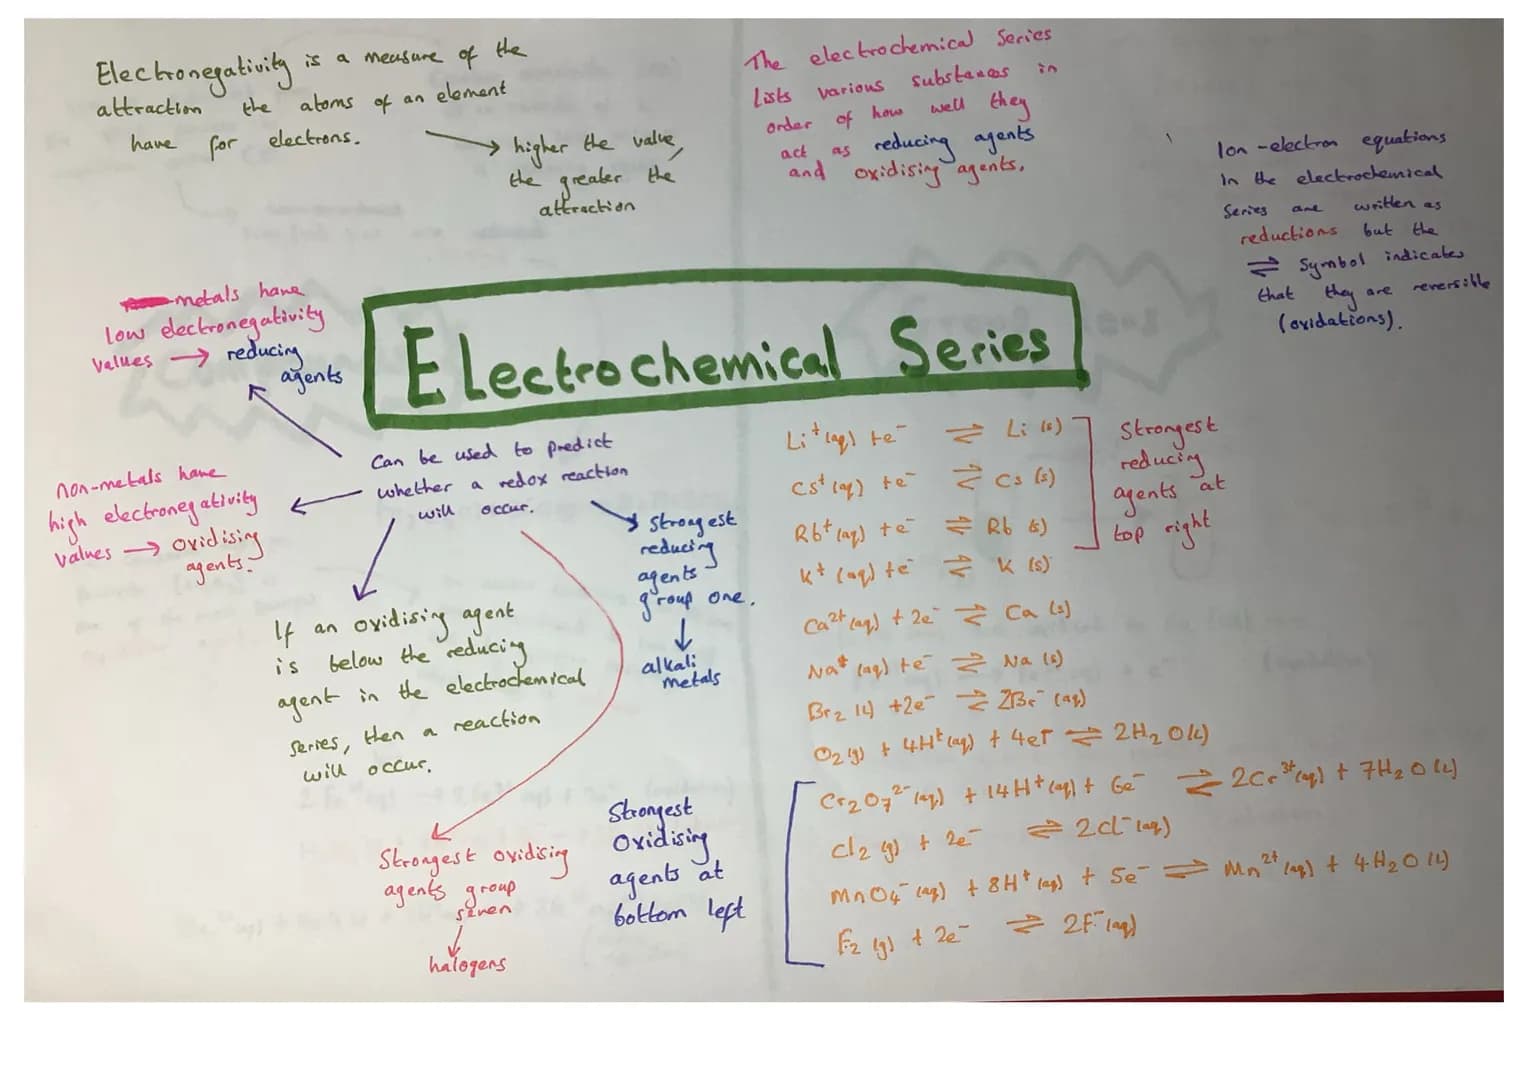 Electronegativity is a measure of the
attraction the atoms of an element
have for electrons.
higher the value,
the greater the
attraction
The electrochemical Series
lists various substances in
order of how well they
act as reducing agents
and oxidising agents.
Ion-electron equations
in the electrochemical
series are written as
reductions but the
⇌ symbol indicates
that they are reversible
(oxidations).
Electrochemical Series
metals have
low electronegativity
values → reducing
agents
non-metals have
high electronegativity
values → oxidising
agents.
Can be used to predict
whether a redox reaction
will occur.
strongest
reducing
agents
group one.
↓
alkali
metals
If an oxidising agent
is below the reducing
agent in the electrochemical
series, then a reaction
will occur.
Strongest oxidising
agents group
seven
↓
halogens
Li⁺(aq) + e⁻ ⇌ Li (s)
Cs⁺(aq) + e⁻ ⇌ Cs (s)
Rb⁺(aq) + e⁻ ⇌ Rb (s)
K⁺(aq) + e⁻ ⇌ K (s)
Ca²⁺(aq) + 2e⁻ ⇌ Ca (s)
Na⁺(aq) + e⁻ ⇌ Na (s)
Br₂ (l) + 2e⁻ ⇌ 2Br⁻ (aq)
O₂(g) + 4H⁺(aq) + 4e⁻ ⇌ 2H₂O(l)
Cr₂O₇²⁻(aq) + 14H⁺(aq) + 6e⁻ ⇌ 2Cr³⁺(aq) + 7H₂O(l)
Cl₂ (g) + 2e⁻ ⇌ 2Cl⁻(aq)
MnO₄⁻(aq) + 8H⁺(aq) + 5e⁻ ⇌ Mn²⁺(aq) + 4H₂O(l)
F₂ (g) + 2e⁻ ⇌ 2F⁻(aq)
Strongest
reducing
agents at
top right
Strongest
Oxidising
agents at
bottom left